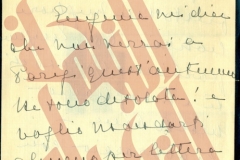 Eugenia mi dice
che non verrai a
Parigi quest'autunno
Ne sono desolata! e
voglio mandarti
almeno per lettera